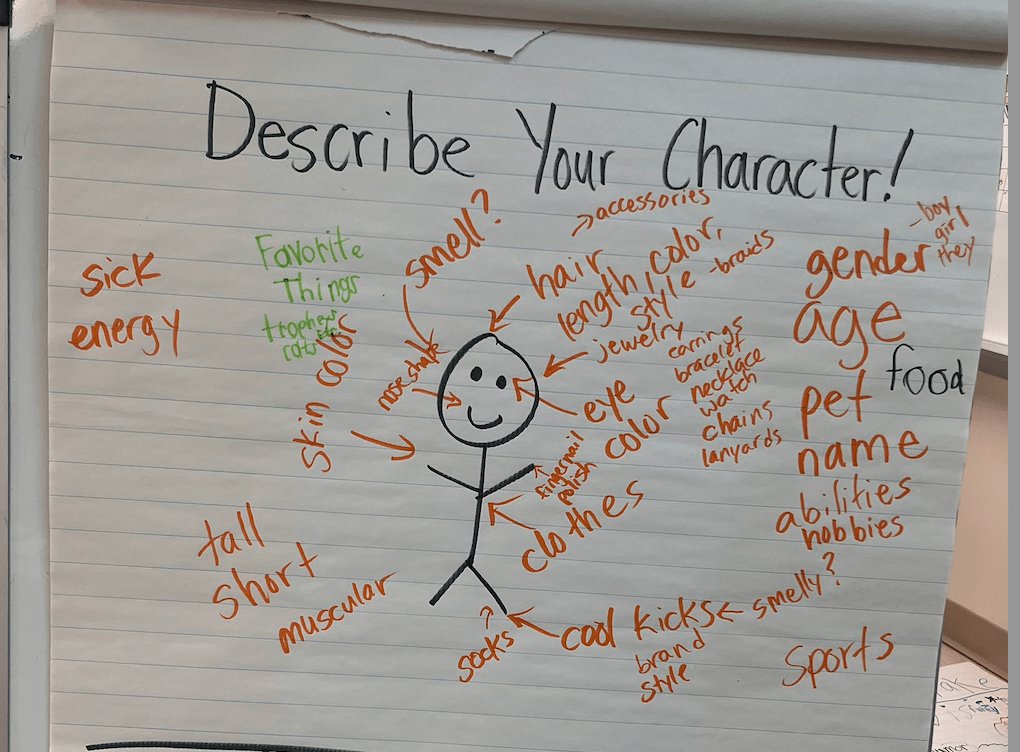 Describe Your Character!
smell?
→accessories
-boy
girl
they
Favorite
Things
sick
energy
hair
length, color,
style -braids
gender
age
food
pet
name
abilities
hobbies
jewelry
earnings
bracelet
necklace
watch
chains
lanyards
skin color
nose shape
eye
color
fingernail
polish
clothes
tall
short
muscular
socks
cool kicks ← smelly?
brand
style
sports